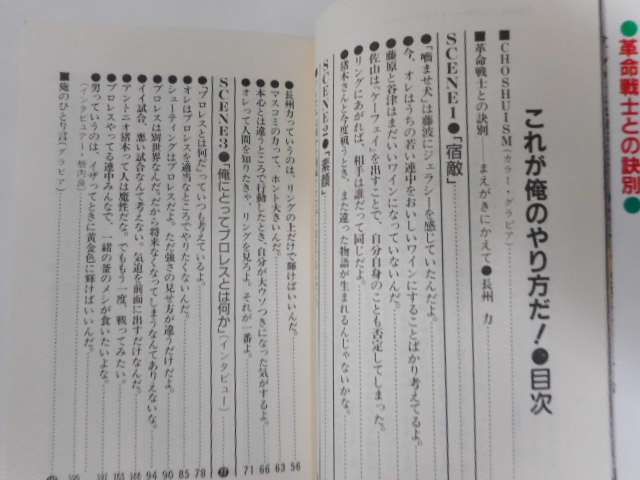 ●革命戦士との訣別●
これが俺のやり方だ!●目次
■CHOSHUISM(カラー・グラビア)
■革命戦士との訣別 まえがきにかえて●長州 力
SCENE1●「宿敵」
●「噛ませ犬」は藤波にジェラシーを感じていたんだよ。
●今、オレはうちの若い連中をおいしいワインにすることばかり考えてるよ。
●藤原と谷津はまだいいワインになっていないんだ。
●佐山は「ケーフェイ」を出すことで、自分自身のことも否定してしまった。
●リングにあがれば、相手は誰だって同じだよ。
●猪木さんと今度戦うとき、また違った物語が生まれるんじゃないかな。
SCENE2●「素顔」
●長州力っていうのは、リングの上だけで輝けばいいんだ。 56
●マスコミの力って、ホント大きいんだ。 63
●本心とは違うところで行動したとき、自分が大ウソつきになった気がするよ。 66
●オレって人間を知りたきゃ、リングを見ろよ。それが一番よ。 71
SCENE3●「俺にとってプロレスとは何か」(インタビュー) 77
●"プロレスとは何だ"っていつも考えているよ。 78
●オレはプロレスを適当なところでやりたくないんだ。 85
●シューティングはプロレスだよ。ただ強さの見せ方が違うだけだよ。 90
●プロレスは別世界なんだ。だから将来なくなってしまうなんてありえないな。 94
●イイ試合、悪い試合なんて考えない。気迫を前面に出すだけなんだ。
●アントニオ猪木って人は魔性だな。でももう一度、戦ってみたい。
●プロレスやってる連中みんなで、一緒の釜のメシが食いたいよな。
●男っていうのは、イザってときに黄金色に輝けばいいんだ。
(インタビュアー・
■俺のひとり言(グラビア)